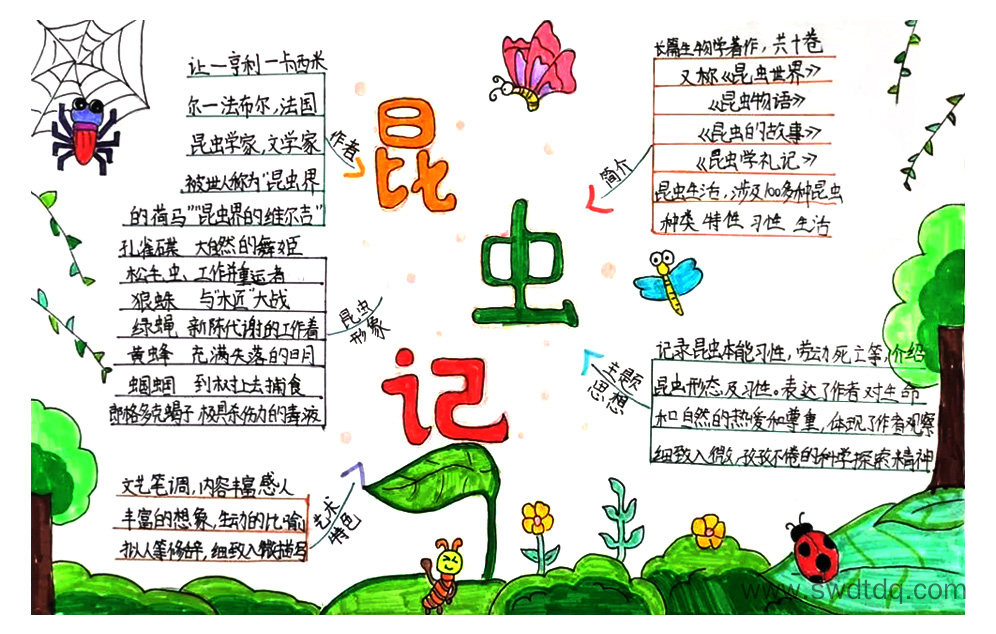 昆
虫
记
作者
让一亨利一卡西米
尔一法布尔,法国
昆虫学家,文学家
被世人称为"昆虫界
的荷马""昆虫界的维尔吉"
昆虫
形象
孔雀碟 大自然的舞姬
松毛虫、工作并重运者
狼蛛 与"木匠"大战
绿蝇 新陈代谢的工作者
黄蜂 充满失落的日月
蝈蝈 到树上去捕食
郎格多克蝎子 极具杀伤力的毒液
艺术
特色
文艺笔调,内容丰富感人
丰富的想象,生动的比喻
拟人等修辞,细致入微描写
简介
长篇生物学著作,共十卷
又称《昆虫世界》
《昆虫物语》
《昆虫的故事》
《昆虫学札记》
昆虫生活,涉及100多种昆虫
种类 特性 习性 生活
主题
思想
记录昆虫本能习性,劳动死亡等,介绍
昆虫形态及习性。表达了作者对生命
和自然的热爱和尊重,体现了作者观察
细致入微,孜孜不倦的科学探索精神
www.swdtdq.com